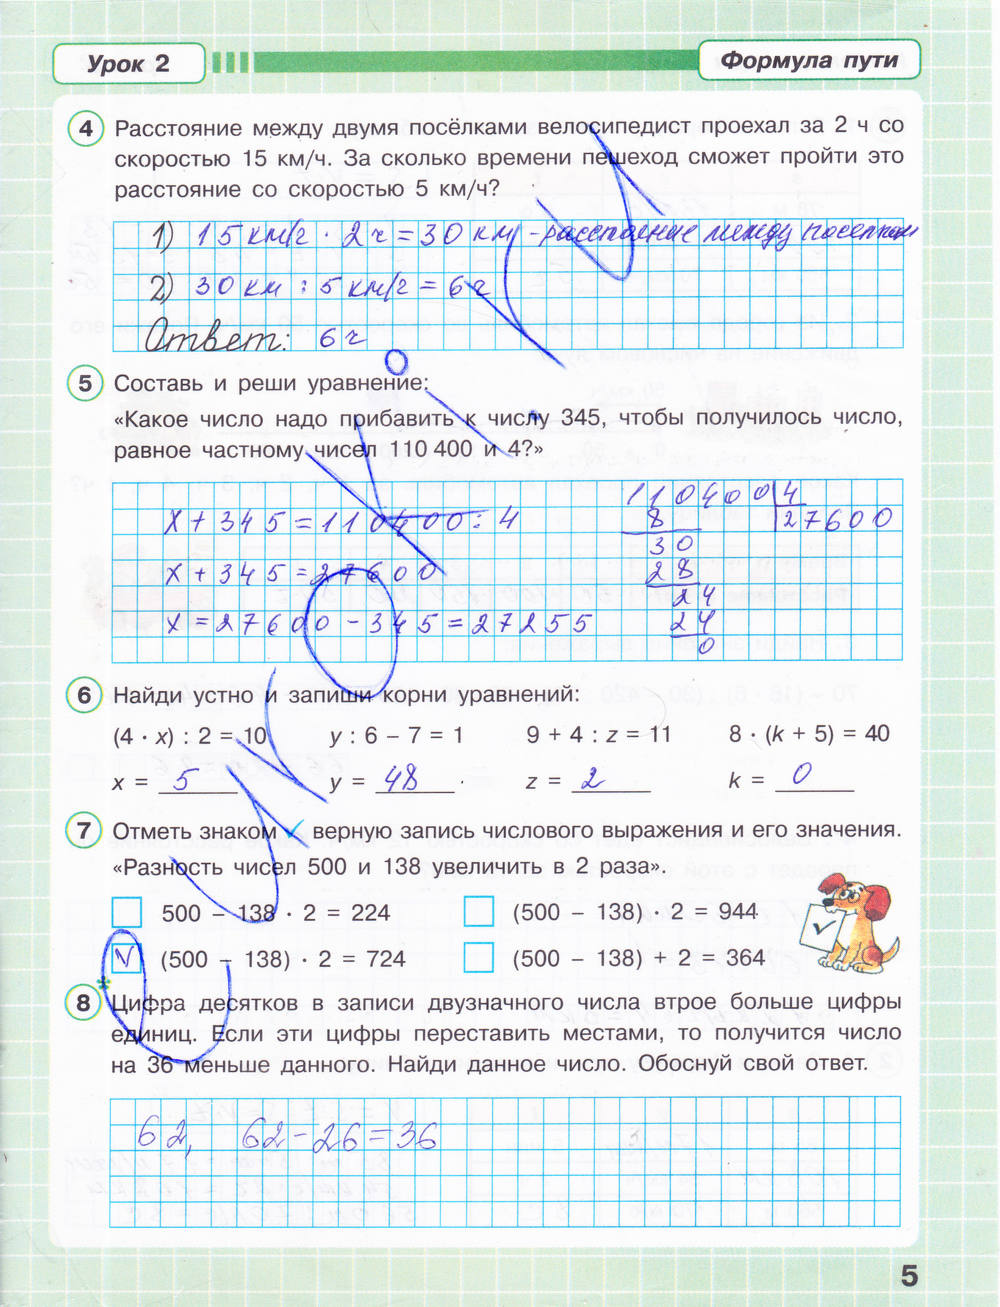 Урок 2
Формула пути
4 Расстояние между двумя посёлками велосипедист проехал за 2 ч со
скоростью 15 км/ч. За сколько времени пешеход сможет пройти это
расстояние со скоростью 5 км/ч?
1) 15 км/г · 2 ч = 30 км - расстояние между поселками
2) 30 км : 5 км/г = 6 г
Ответ: 6 г
5 Составь и реши уравнение:
«Какое число надо прибавить к числу 345, чтобы получилось число,
равное частному чисел 110 400 и 4?»
x + 345 = 110400 : 4
x + 345 = 27600
x = 27600 - 345 = 27255
110400 4
8 27600
30
28
24
24
0
6 Найди устно и запиши корни уравнений:
(4 · x) : 2 = 10 y : 6 – 7 = 1 9 + 4 : z = 11 8 · (k + 5) = 40
x = 5 y = 48 z = 2 k = 0
7 Отметь знаком ✓ верную запись числового выражения и его значения.
«Разность чисел 500 и 138 увеличить в 2 раза».
500 – 138 · 2 = 224 (500 – 138) · 2 = 944
V (500 – 138) · 2 = 724 (500 – 138) + 2 = 364
8 Цифра десятков в записи двузначного числа втрое больше цифры
единиц. Если эти цифры переставить местами, то получится число
на 36 меньше данного. Найди данное число. Обоснуй свой ответ.
62, 62 - 26 = 36
5